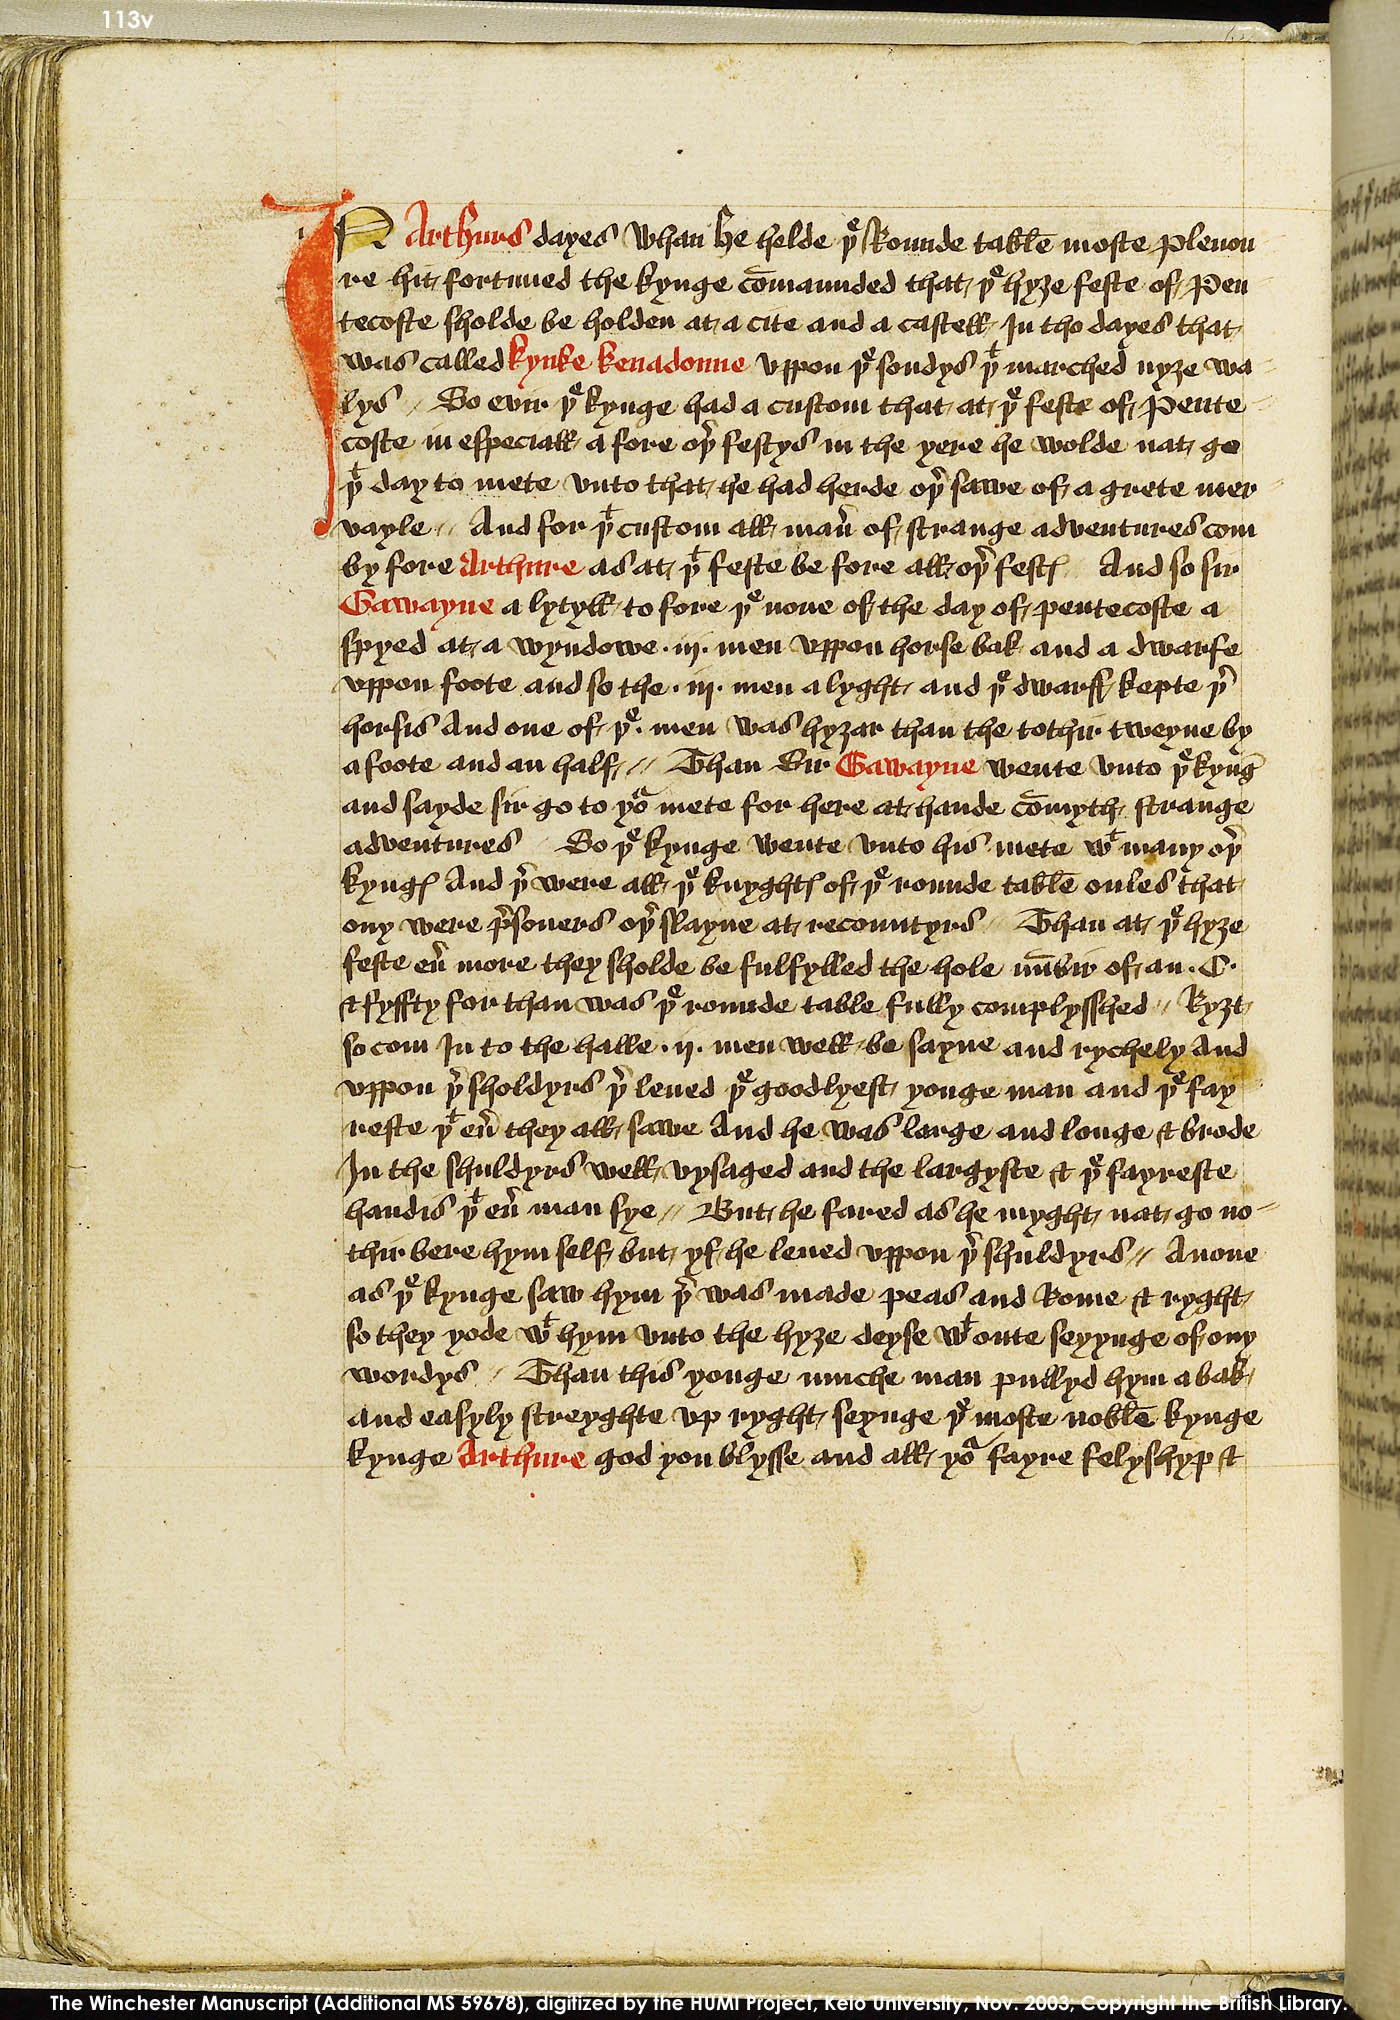 113v
IN Arthurs dayes whan he helde þͤ Rounde table moste plenou
re hit fortuned the kynge com̄aunded that þͤ hyȝe feste of Pen
tecoste sholde be holden at a cite and a castell In tho dayes that
was called kynke kenadonne vppon þͤ sondys þᵗ marched nyȝe wa
lys // So evir þͤ kynge had a custom that at þͤ feste of Pente
coste in especiall a fore oþ̓ festys in the yere he wolde nat go
þᵗ day to mete vnto that he had herde oþ̓ sawe of a grete mer
vayle // And for þᵗ custom all man̓ of strange adventures com
by fore Arthure as at þᵗ feste be fore all oþ̓ festꝭ And so sir
Gawayne a lytyll to fore þͤ none of the day of pentecoste a
spyed at a wyndowe · iij · men vppon horse bak and a dwarfe
vppon foote and so the · iij · men a lyght and þͤ dwarff kepte þ̓
horsis And one of þͤ · men was hyȝar than the tothir tweyne by
a foote and an half // Than Sir Gawayne wente vnto þͤ kynḡ
and sayde sir go to yoᵃ mete for here at hande com̄yth strange
adventures So þͤ kynge wente vnto his mete wᵗ many oþ̓
kyngꝭ And þ̓ were all þͤ knyghtꝭ of þͤ rounde table onles that
ony were p̓soners oþ̓ slayne at recountyrs // Than at þͤ hyȝe
feste eu̓ more they sholde be fulfylled the hole nu̅bir of an · C ·
& fyffty for than was þͤ rounde table fully complysshed // Ryȝt
so com In to the halle · ij · men well be sayne and rychely And
vppon þ̓ sholdyrs þ̓ lened þͤ goodlyest yonge man and þͤ fay
reste þᵗ eu̓ they all sawe And he was large and longe & brode
In the shuldyrs well vysaged and the largyste & þͤ fayreste
handis þᵗ eu̓ man sye // But he fared as he myght nat go no-
thir bere hym self but yf he lened vppon þ̓ shuldyrs // Anone
as þͤ kynge saw hym þ̓ was made peas and Rome & ryght
so they yode wᵗ hym vnto the hyȝe deyse wᵗ oute seyynge of ony
wordys // Than this yonge muche man pullyd hym a bak
and easyly streyghte vp ryght seynge þͤ moste noble kynge
kynge Arthure god you blysse and all yoᵃ fayre felyshyp &
The Winchester Manuscript (Additional MS 59678), digitized by the HUMI Project, Keio University, Nov. 2003, Copyright the British Library.